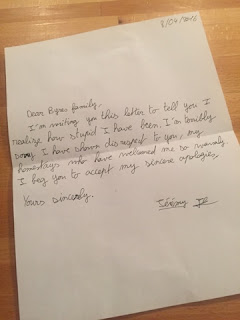 8/04/2016
Dear Byres family,
I'm writing you this letter to tell you I
realise how stupid I have been. I'm terribly
sorry I have shown disrespect to you, my
homestays who have welcomed me so warmly.
I beg you to accept my sincere apologies,
Yours sincerely.
Jérémy